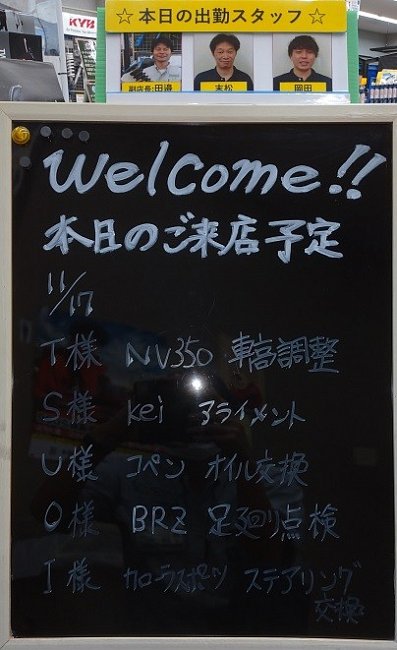 ☆本日の出勤スタッフ☆
KYB
副店長:田邉 末松 岡田
Welcome!!
本日のご来店予定
11/17
T様 NV350 車高調整
S様 kei アライメント
U様 コペン オイル交換
O様 BRZ 足廻り点検
I様 カローラスポーツ ステアリング
交換